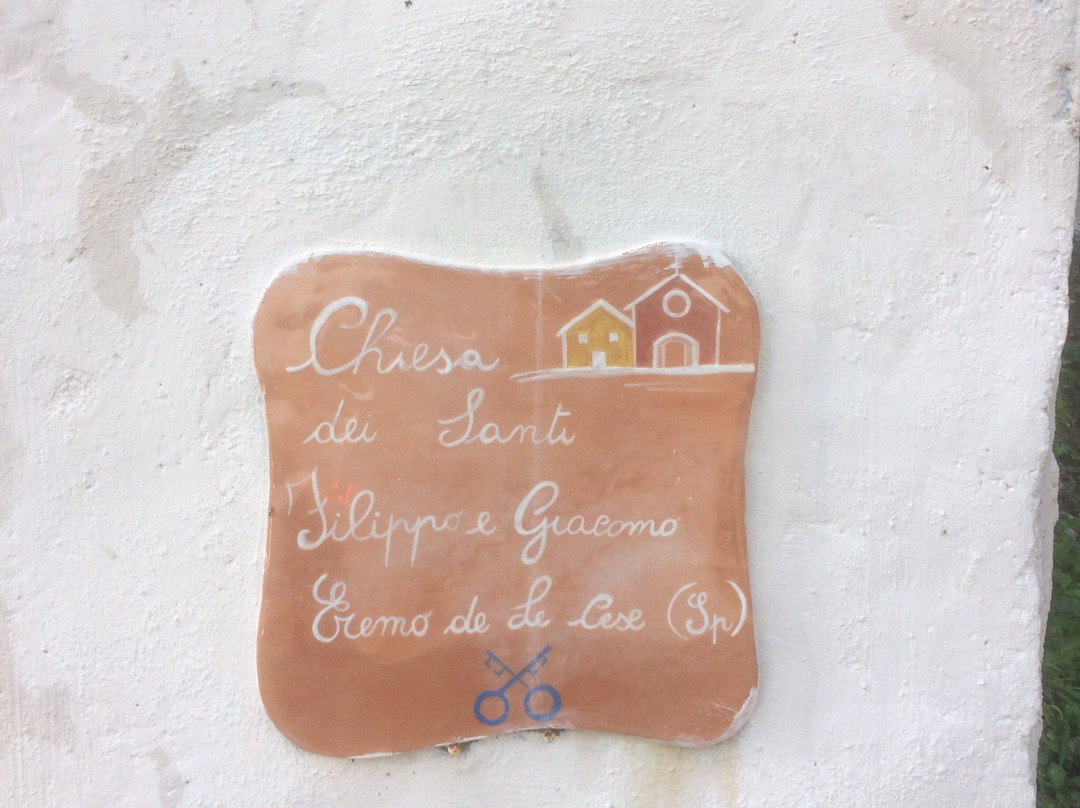 Chiesa
dei Santi
Filippo e Giacomo
Eremo de Le Cese (Sp)